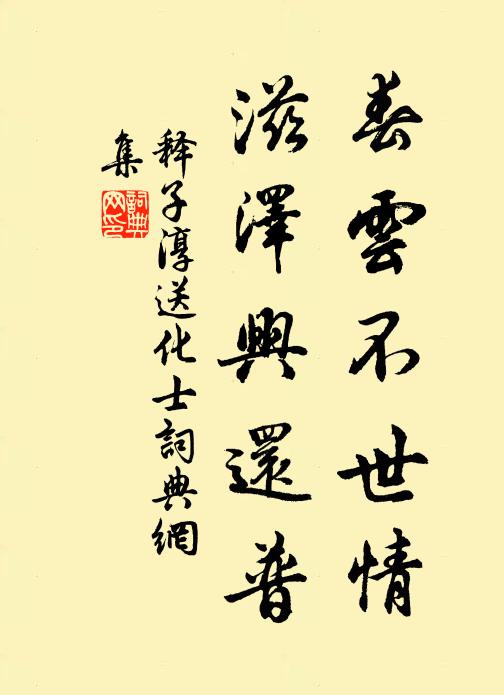 春雲不世情
滋澤興還普
释子淳送化士詞典網
集
詞典网印